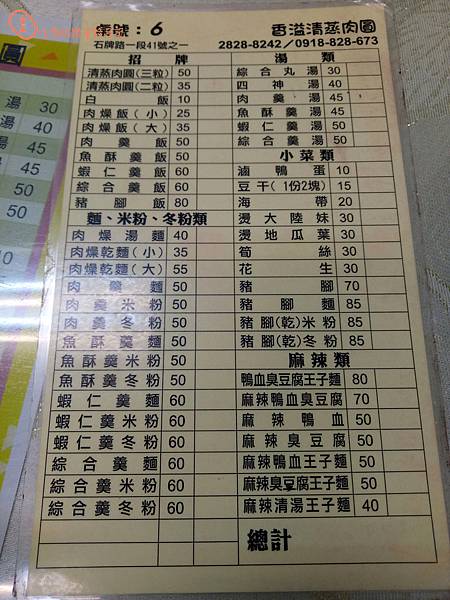 桌號：6
香溢清蒸肉圓
石牌路一段41號之一
2828-8242／0918-828-673
招牌
清蒸肉圓(三粒) 50
清蒸肉圓(二粒) 35
白飯 10
肉燥飯(小) 25
肉燥飯(大) 35
肉羹飯 50
魚酥羹飯 50
蝦仁羹飯 60
綜合羹飯 60
豬腳飯 80
麵、米粉、冬粉類
肉燥湯麵 40
肉燥乾麵(小) 35
肉燥乾麵(大) 55
肉羹麵 50
肉羹米粉 50
肉羹冬粉 50
魚酥羹麵 50
魚酥羹米粉 50
魚酥羹冬粉 50
蝦仁羹麵 60
蝦仁羹米粉 60
蝦仁羹冬粉 60
綜合羹麵 60
綜合羹米粉 60
綜合羹冬粉 60
湯類
綜合丸湯 30
四神湯 40
肉羹湯 45
魚酥羹湯 45
蝦仁羹湯 50
綜合羹湯 50
小菜類
滷鴨蛋 10
豆干(1份2塊) 15
海帶 20
燙大陸妹 30
燙地瓜葉 30
筍絲 30
花生 30
豬腳 70
豬腳麵 85
豬腳(乾)米粉 85
豬腳(乾)冬粉 85
麻辣類
鴨血臭豆腐王子麵 80
麻辣鴨血臭豆腐 70
麻辣鴨血 50
麻辣臭豆腐 50
麻辣鴨血王子麵 50
麻辣臭豆腐王子麵 50
麻辣清湯王子麵 40
總計
圓
湯 30
湯 40
湯 45
湯 45
50
50
10